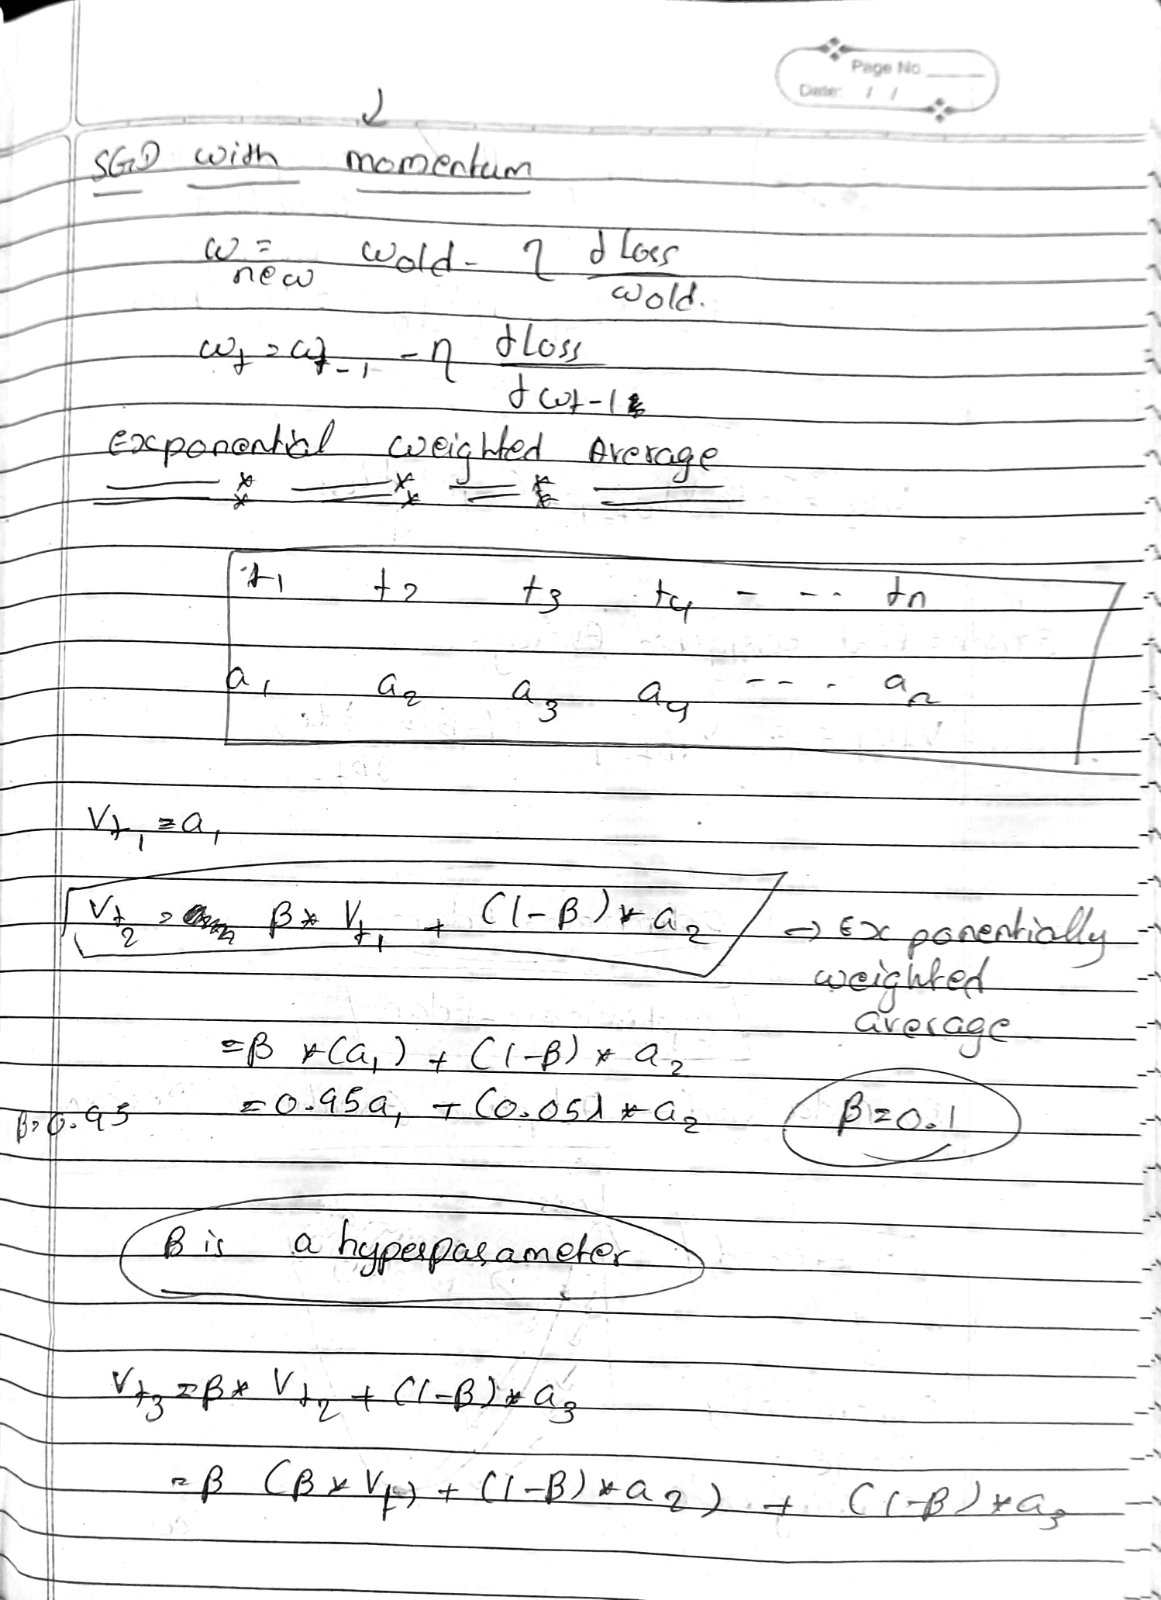 Page No.
Date: / /
SGD with momentum
w new = wold - η dLoss / wold.
wt = wt-1 - η dLoss / dwt-1
Exponential weighted Average
t1 t2 t3 t4 - - - - tn
a1 a2 a3 a4 - - - - an
Vt1 = a1
Vt2 = β * Vt1 + (1-β) * a2 ⇒ Exponentially
weighted
average
= β * (a1) + (1-β) * a2
β=0.95 = 0.95a1 + (0.05) * a2 β=0.1
β is a hyperparameter
Vt3 = β * Vt2 + (1-β) * a3
= β (β * Vt1 + (1-β) * a2) + (1-β) * a3